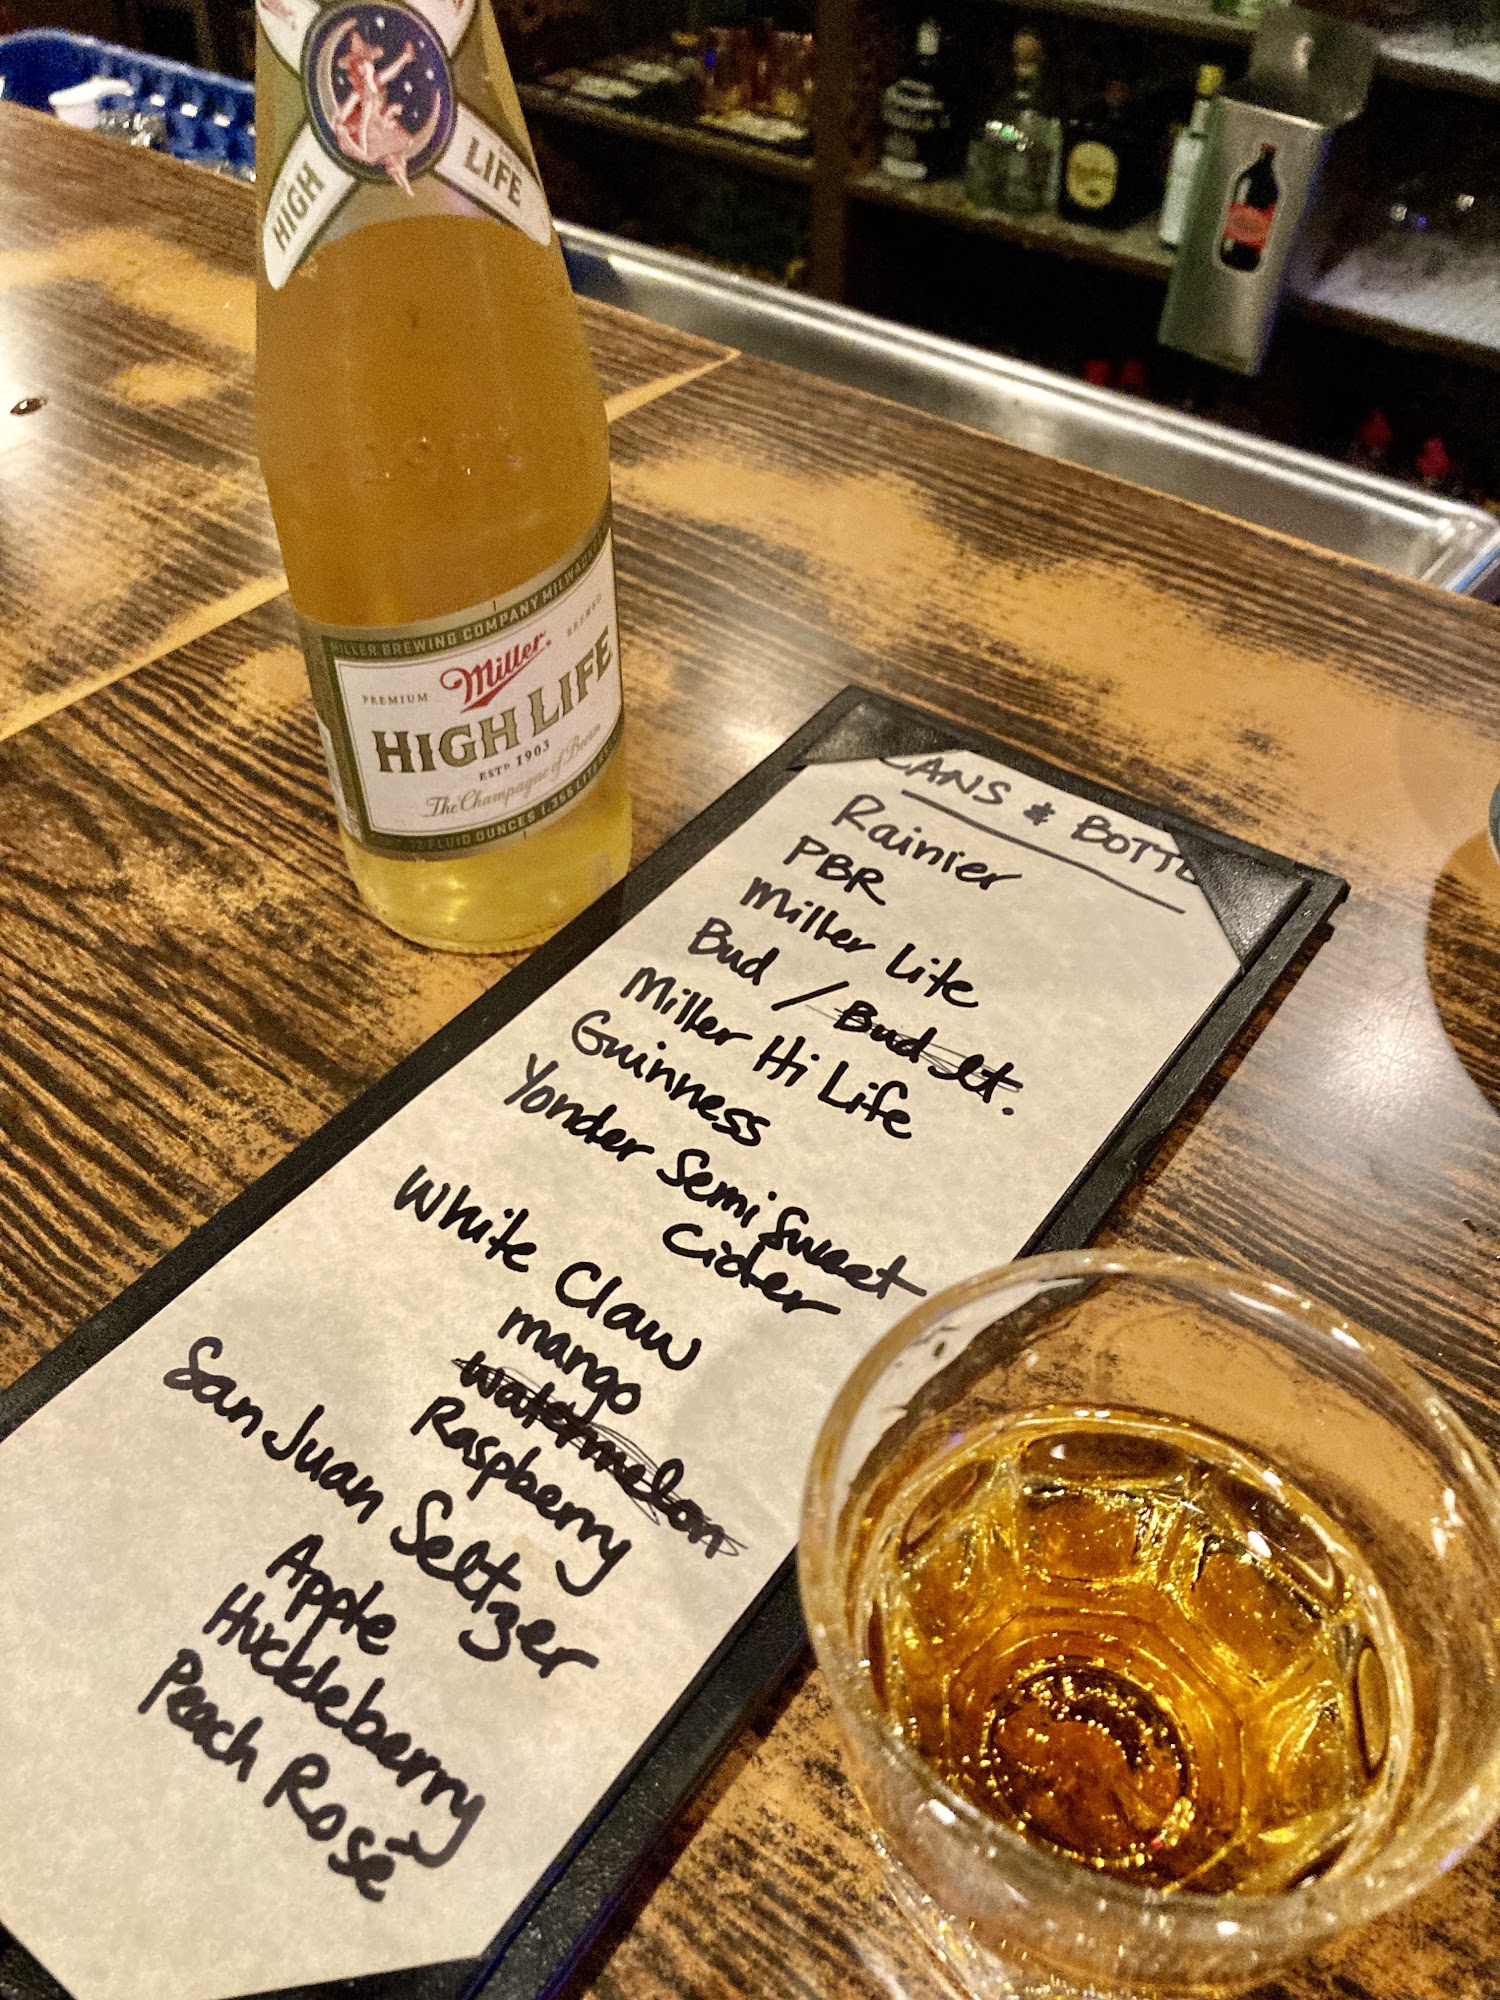 HIGH
LIFE
MILLER BREWING COMPANY MILWAUKEE
PREMIUM
Miller
BREWED
HIGH LIFE
ESTD 1903
The Champagne of Beers
FLUID OUNCES
CANS & BOTTL
Rainier
PBR
Miller Lite
Bud / Bud Lt.
Miller Hi Life
Guinness
Yonder Semi Sweet
Cider
White Claw
mango
Watermelon
Raspberry
San Juan Seltzer
Apple
Huckleberry
Peach Rosé